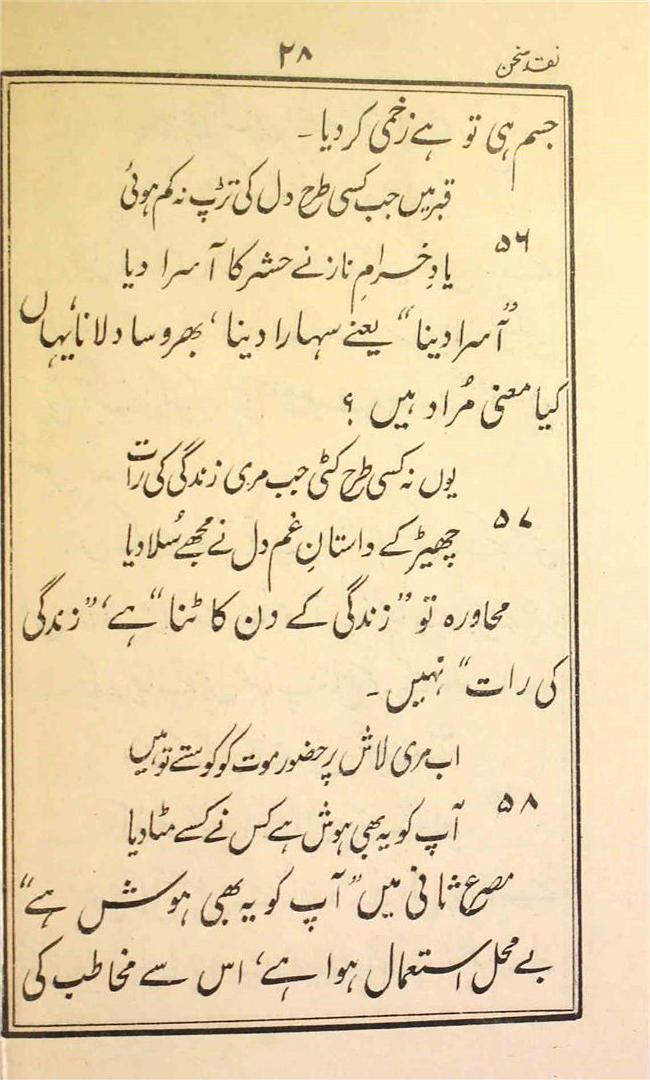 نقد سخن
۲۸
جسم ہی تو ہے زخمی کر دیا۔
قبر میں جب کسی طرح دل کی تڑپ نہ کم ہوئی
۵۶
یادِ خرامِ ناز نے حشر کا آسرا دیا
”آسرا دینا“ یعنے سہارا دینا، بھروسا دلانا، یہاں
کیا معنی مُراد ہیں ؟
یوں نہ کسی طرح کٹی جب مری زندگی کی رات
۵۷
چھیڑ کے داستانِ غم دل نے مجھے سُلا دیا
محاورہ تو ”زندگی کے دن کاٹنا“ ہے، ”زندگی
کی رات“ نہیں۔
اب مری لاش پر حضور موت کو کوستے تو ہیں
۵۸
آپ کو یہ بھی ہوش ہے کس نے کسے مٹا دیا
مصرع ثانی میں ”آپ کو یہ بھی ہوش ہے“
بے محل استعمال ہوا ہے، اس سے مخاطب کی